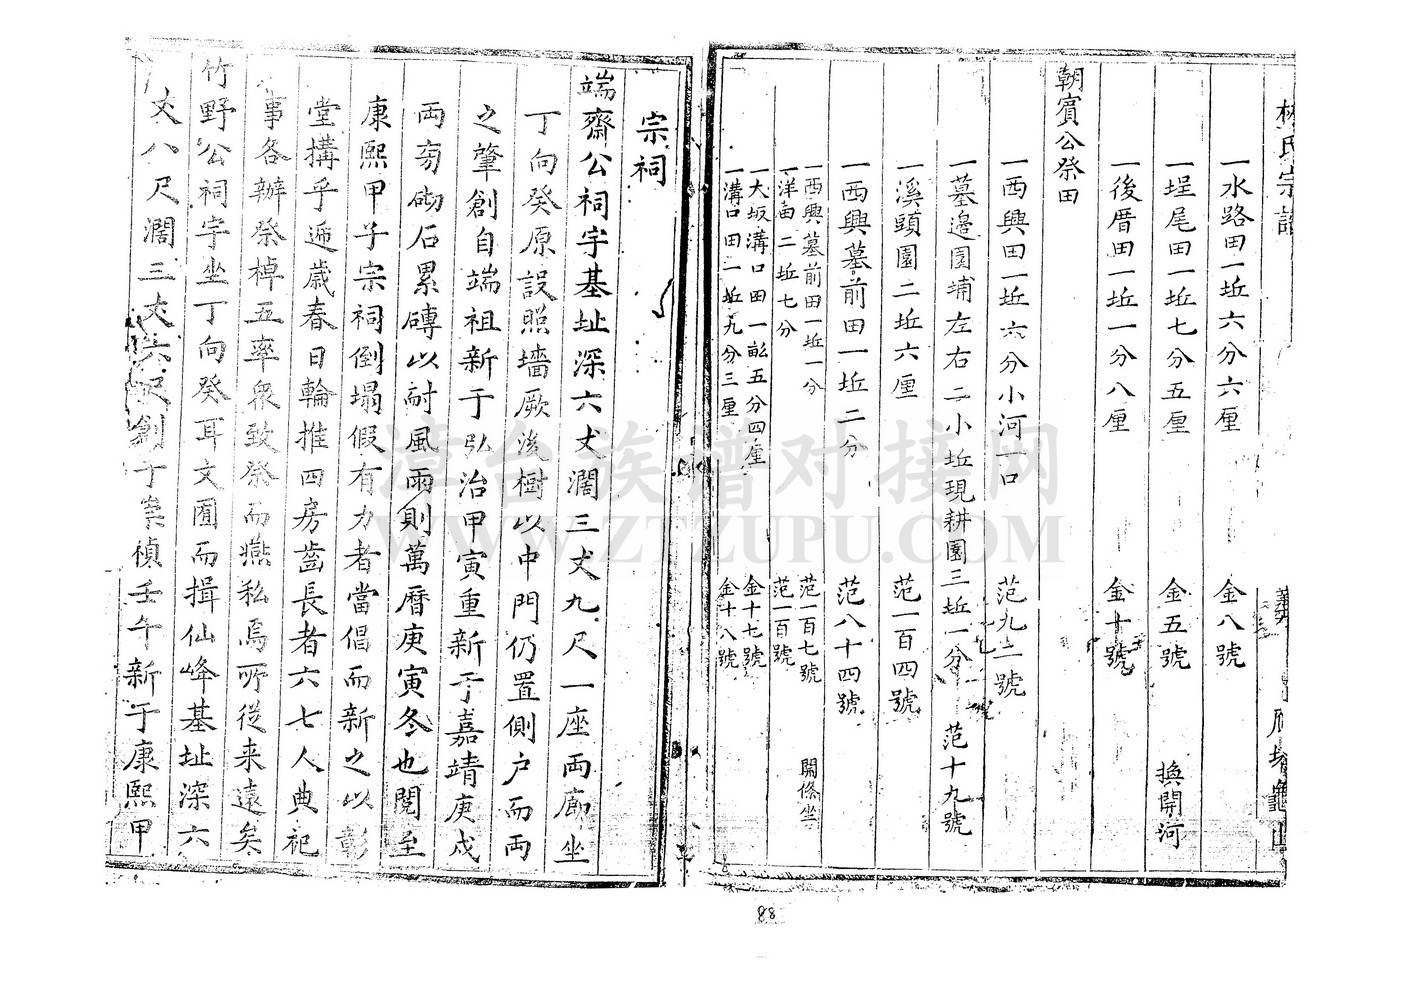 林氏宗譜
一水路田一坵六分六厘 金八號
一埕尾田一坵七分五厘 金五號 換開河
一後厝田一坵一分八厘 金十號
朝賓公祭田
一西興田一坵六分小河一口 范九二號
一墓邊園埔左右二小坵現耕園三坵一分 范十九號
一溪頭園二坵六厘 范一百四號
一西興墓前田一坵二分 范八十四號
一西興墓前田一坵一分 范一百七號 開條坐
一洋面二坵七分 范一百號
一大坂溝口田一畝五分四厘 金十七號
一溝口田一坵九分三厘 金十八號
宗祠
端齋公祠宇基址深六丈濶三丈九尺一座両廊坐
丁向癸原設照墻厥後樹以中門仍置側户而両
之肇創自端祖新于弘治甲寅重新于嘉靖庚戍
両旁砌石累磚以耐風雨則萬曆庚寅冬也閱至
康熙甲子宗祠倒塌假有力者當倡而新之以彰
堂搆乎遞歲春日輪推四房齒長者六七人典祀
事各辦祭棹五率衆致祭而燕私焉所從来遠矣
竹野公祠宇坐丁向癸耳文圃而揖仙峰基址深六
丈八尺濶三丈六尺創于崇禎壬午新于康熙甲
88
漳台族谱对接网
WWW.ZTZUPU.COM